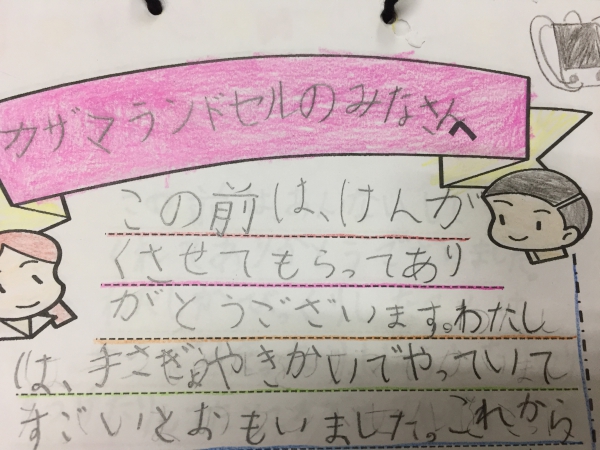 カザマランドセルのみなさんへ
この前は、けんが
くさせてもらってあり
がとうございます。わたし
は、手さぎょやきかいでやっていて
すごいとおもいました。これから